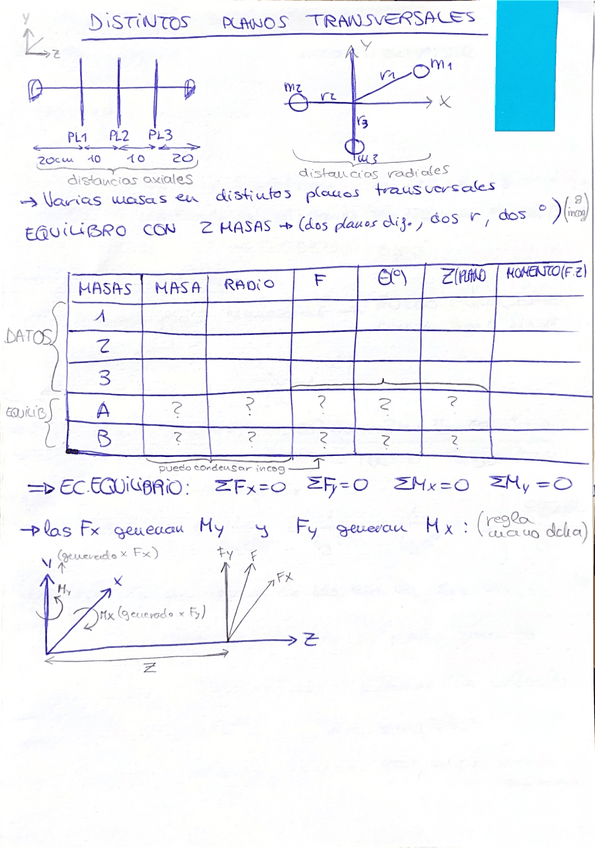 DISTINTOS PLANOS TRANSVERSALES
Y
Z
PL1 PL2 PL3
20cm 10 10 20
distancias axiales
Y
X
m1
r1
m2
r2
r3
m3
distancias radiales
→ Varias masas en distintos planos transversales
EQUILIBRO CON 2 MASAS → (dos planos dif., dos r, dos °) (8 incog)
MASAS MASA RADIO F Θ(°) Z(PLANO MOMENTO(F.Z)
DATOS
1
2
3
EQUILIB
A ? ? ? ? ?
B ? ? ? ? ?
puedo condensar incog
⇒ EC. EQUILIBRIO: ΣFx=0 ΣFy=0 ΣMx=0 ΣMy=0
→ las Fx generan My y Fy generan Mx: (regla mano dcha)
Y (generado x Fx)
My
X
Mx (generado x Fy)
Fy F Fx
Z
Z